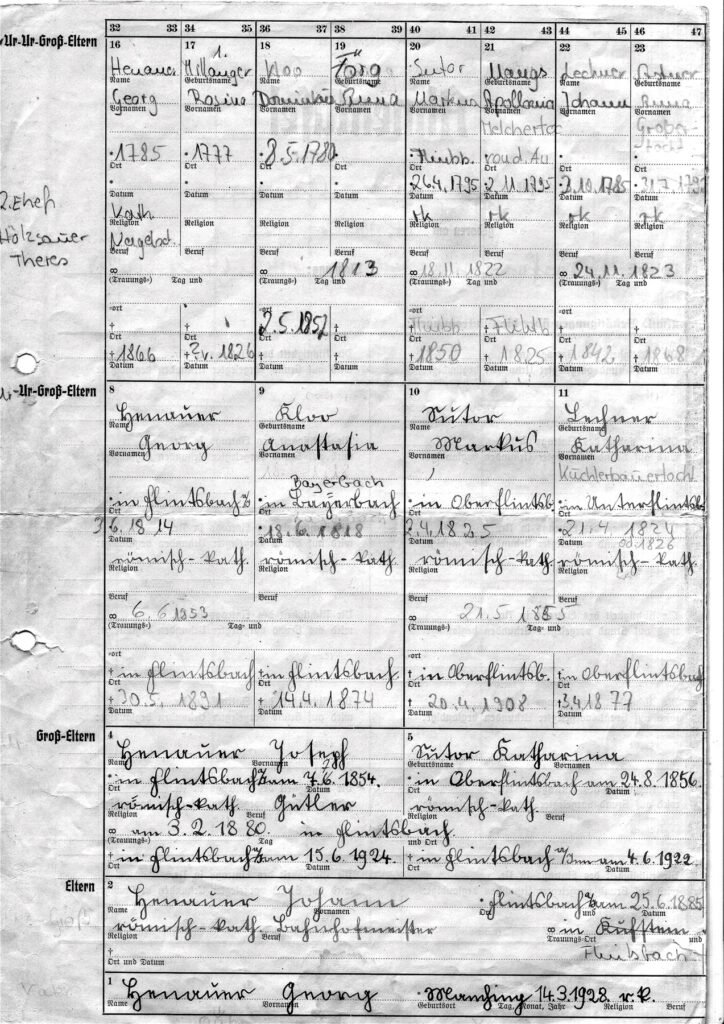 32 33 36 39 40 43 44 47
Ur-Ur-Groß-Eltern
16 17 1. 18 19 20 21 22 23
Henauer Millanger Kloo Förg Sutor Mangs Lechner
Name Geburtsname Name Geburtsname Name Geburtsname Name Geburtsname
Georg Rosina Dominikus Anna Markus Apollonia Johann Anna
Vornamen Vornamen Vornamen Vornamen Vornamen Vornamen Vornamen Vornamen
* 1785 * 1777 8.5.1780
Ort Ort Ort Ort Ort Ort Ort Ort
26.4.1795 2.11.1795 3.10.1785
Datum Datum Datum Datum Datum Datum Datum Datum
2. Ehef
Kath rk rk rk rk
Religion Religion Religion Religion Religion Religion Religion Religion
Holzsauer
Theres
Beruf Beruf Beruf Beruf Beruf Beruf Beruf Beruf
∞ ∞ 1813 ∞ 18.11.1822 ∞ 24.11.1823
(Trauungs-) Tag und (Trauungs-) Tag und (Trauungs-) Tag und (Trauungs-) Tag und
-ort -ort -ort -ort
2.5.1852
Ort Ort Ort Ort Ort Ort Ort Ort
† 1866 † 1826 † † † 1850 † 1825 † 1842 † 1868
Datum Datum Datum Datum Datum Datum Datum Datum
Ur-Groß-Eltern
8 9 10 11
Henauer Kloo Sutor Lechner
Name Geburtsname Name Geburtsname
Georg Anastasia Markus Katharina
Vornamen Vornamen Vornamen Vornamen
Bayerbach Küchlerbauertocht
* in Flintsbach * in Bayerbach * in Oberflintsb. * in Unterflintsb
Ort Ort Ort Ort
6.1814 18.6.1818 2.4.1825 21.4 1824
od 1826
Datum Datum Datum Datum
römisch-kath. römisch-kath. römisch-kath. römisch-kath.
Religion Religion Religion Religion
Beruf Beruf Beruf Beruf
∞ 6.6 1853 ∞ 21.5.1855
(Trauungs-) Tag- und (Trauungs-) Tag- und
-ort -ort
† in Flintsbach † in Flintsbach † in Oberflintsb. † in Oberflintsbach
Ort Ort Ort Ort
† 30.5.1891 † 14.4.1874 † 20.4.1908 † 3.4.1877
Datum Datum Datum Datum
Groß-Eltern
4 5
Henauer Joseph Sutor Katharina
Name Vornamen Geburtsname Vornamen
* in Flintsbach am 7.6.1854. * in Oberflintsbach am 24.8.1856.
Ort Datum Ort Datum
römisch-kath. Gütler römisch-kath.
Religion Beruf Religion
∞ am 3.2.1880. in Flintsbach
(Trauungs-) Tag und Ort
† in Flintsbach am 15.6.1924. † in Flintsbach a/Inn am 4.6.1922.
Ort Datum Ort Datum
Eltern
2
Henauer Johann * Flintsbach am 25.6.1885
Name Vornamen und Datum
römisch-kath. Bahnhofmeister ∞ in Kufstein
Religion Beruf Trauungs-Ort und Datum
† Flintsbach
Ort und Datum
1
Henauer Georg * Manching 14.3.1928. r.k.
Name Vornamen Geburtsort Tag, Monat, Jahr Religion